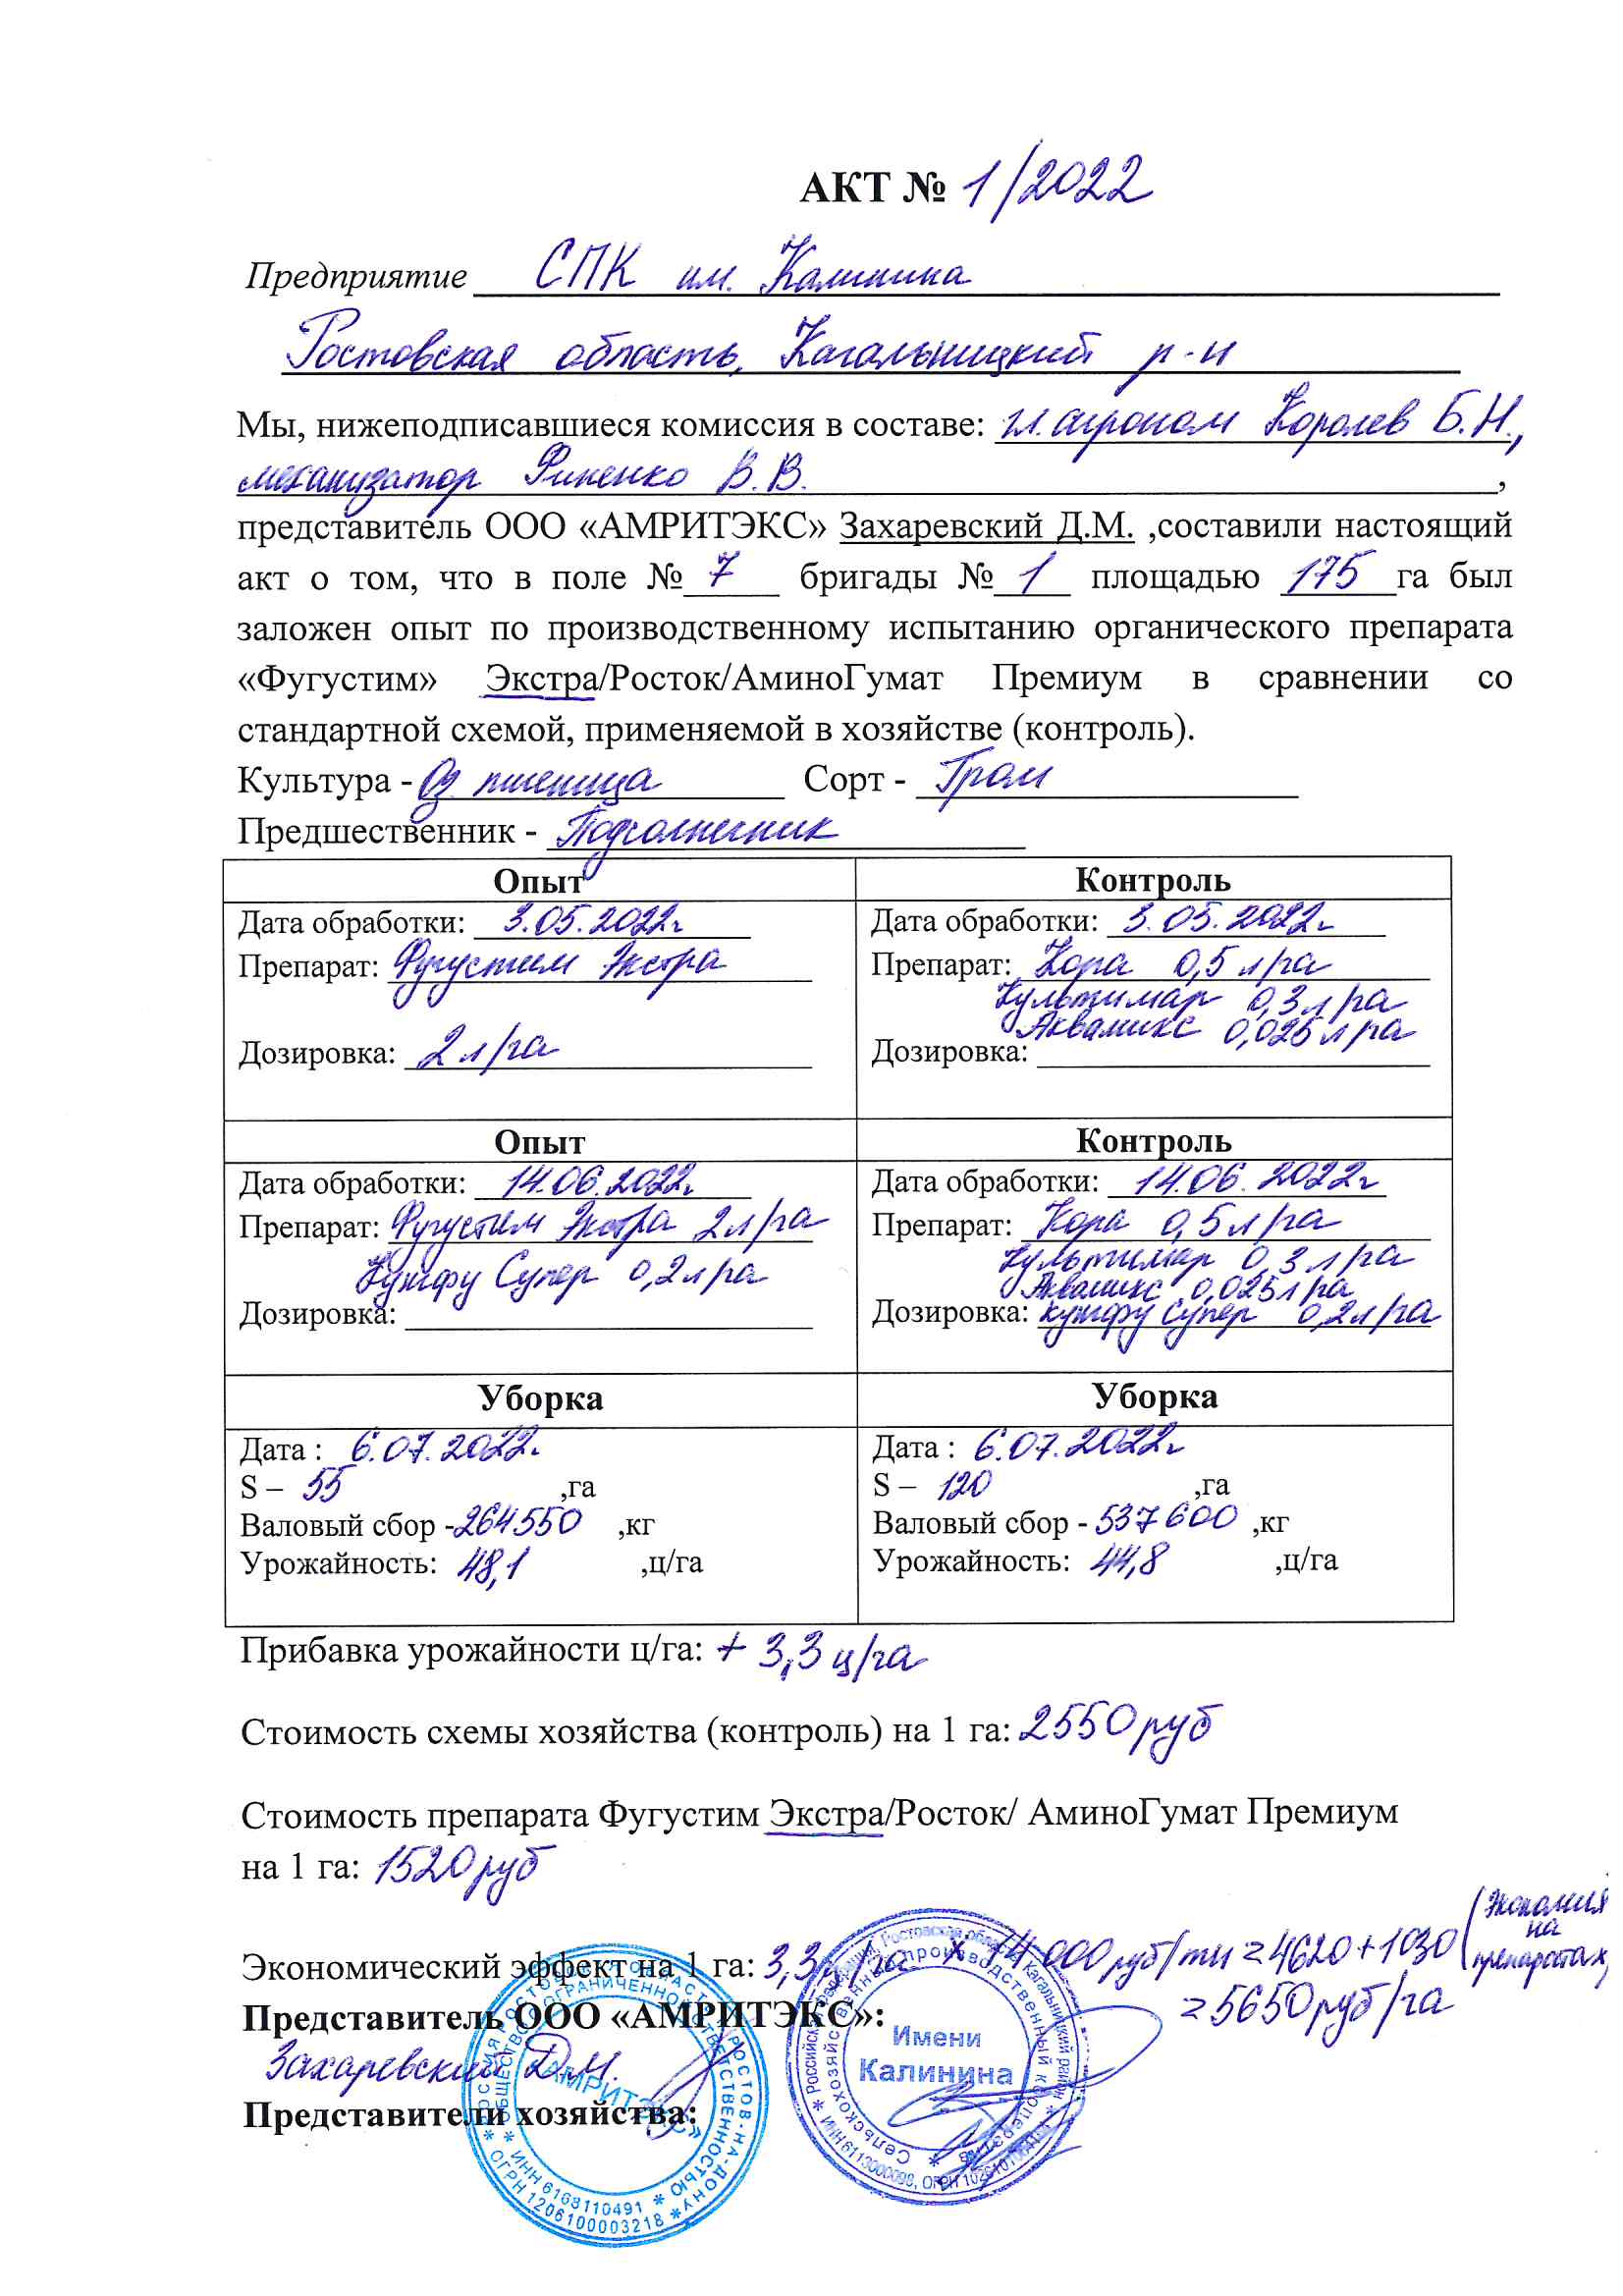 АКТ № 1/2022
Предприятие СПК им. Калинина
Ростовская область, Кагальницкий р-н
Мы, нижеподписавшиеся комиссия в составе: гл. агроном Королев Б.Н.,
механизатор Фипенко В.В. ,
представитель ООО «АМРИТЭКС» Захаревский Д.М. ,составили настоящий
акт о том, что в поле № 7 бригады № 1 площадью 175 га был
заложен опыт по производственному испытанию органического препарата
«Фугустим» Экстра/Росток/АминоГумат Премиум в сравнении со
стандартной схемой, применяемой в хозяйстве (контроль).
Культура - Оз пшеница Сорт - Гром
Предшественник - Подсолнечник
Опыт Контроль
Дата обработки: 3.05.2022г Дата обработки: 3.05.2022г
Препарат: Фугустим Экстра Препарат: Кора 0,5 л/га
Культимар 0,3 л/га
Аквамикс 0,025 л/га
Дозировка: 2 л/га Дозировка:
Опыт Контроль
Дата обработки: 14.06.2022г Дата обработки: 14.06.2022г
Препарат: Фугустим Экстра 2 л/га Препарат: Кора 0,5 л/га
Кунгфу Супер 0,2 л/га Культимар 0,3 л/га
Аквамикс 0,025 л/га
Дозировка: Дозировка: Кунгфу Супер 0,2 л/га
Уборка Уборка
Дата : 6.07.2022г Дата : 6.07.2022г
S – 55 ,га S – 120 ,га
Валовый сбор - 264550 ,кг Валовый сбор - 537600 ,кг
Урожайность: 48,1 ,ц/га Урожайность: 44,8 ,ц/га
Прибавка урожайности ц/га: + 3,3 ц/га
Стоимость схемы хозяйства (контроль) на 1 га: 2550 руб
Стоимость препарата Фугустим Экстра/Росток/ АминоГумат Премиум
на 1 га: 1520 руб
Экономический эффект на 1 га: 3,3 ц/га х 14 000 руб/тн = 4620 + 1030 (Экономия на препаратах)
= 5650 руб/га
Представитель ООО «АМРИТЭКС»:
Захаревский Д.М.
Представители хозяйства:
«АМРИТЭКС»
ОБЩЕСТВО С ОГРАНИЧЕННОЙ ОТВЕТСТВЕННОСТЬЮ
ИНН 6168110491
ОГРН 1206100003218
Имени
Калинина
Сельскохозяйственный производственный кооператив